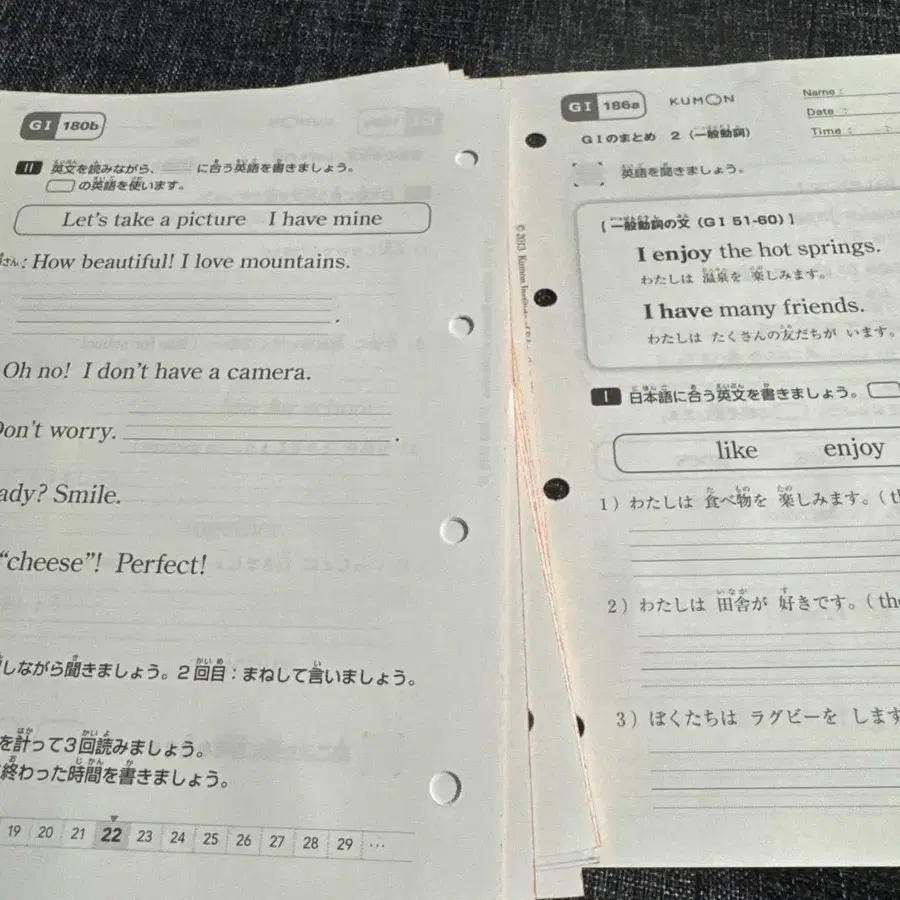 GI 180b
II 英文を読みながら、 に合う英語を書きましょう。
の英語を使います。
Let's take a picture I have mine
さん: How beautiful! I love mountains.
.
Oh no! I don't have a camera.
Don't worry. .
ady? Smile.
"cheese"! Perfect!
しながら聞きましょう。2回目:まねして言いましょう。
を計って3回読みましょう。
終わった時間を書きましょう。
19 20 21 22 23 24 25 26 27 28 29 …
© 2013 Kumon
GI 186a KUMON
Name :
Date :
Time : :
GIのまとめ 2 (一般動詞)
英語を聞きましょう。
[ 一般動詞の文 (GI 51-60) ]
I enjoy the hot springs.
わたしは 温泉を 楽しみます。
I have many friends.
わたしは たくさんの友だちが います。
I 日本語に合う英文を書きましょう。
like enjoy
1) わたしは 食べ物を 楽しみます。(t
2) わたしは 田舎が 好きです。(th
3) ぼくたちは ラグビーを します